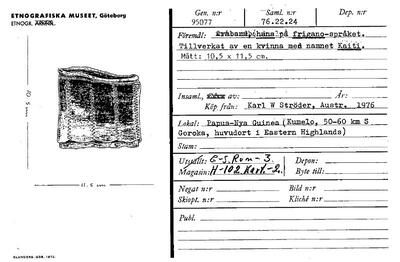 ETNOGRAFISKA MUSEET, Göteborg
ETNOGR.
10,5 cm
11,5 cm
ELANDERS, GBG, 1972.
Gen. n:r
95077
Saml. n:r
76.22.24
Dep. n:r
Föremål: på frigano-språket.
Tillverkat av en kvinna med namnet Kaiti.
Mått: 10,5 x 11,5 cm.
Insaml. av: År:
Köp från: Karl W Ströder, Austr. 1976
Lokal: Papua-Nya Guinea (Kumelo, 50-60 km S
Goroka, huvudort i Eastern Highlands)
Stam:
Utställt: E-5, Rum-3. Depon:
Magasin: H-102. Kart.-2. Byte till:
Negat n:r Bild n:r
Skiopt. n:r Kliché n:r
Publ.